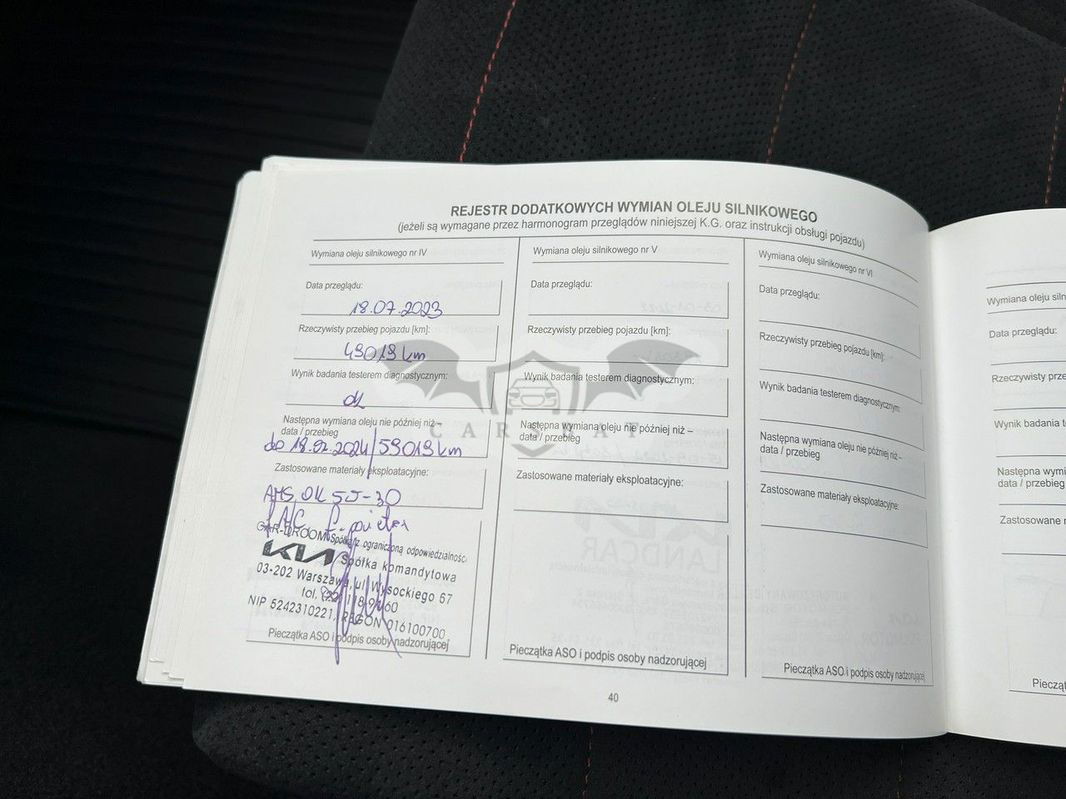 REJESTR DODATKOWYCH WYMIAN OLEJU SILNIKOWEGO
(jeżeli są wymagane przez harmonogram przeglądów niniejszej K.G. oraz instrukcji obsługi pojazdu)
Wymiana oleju silnikowego nr IV
Data przeglądu:
18.07.2023
Rzeczywisty przebieg pojazdu [km]:
49019 km
Wynik badania testerem diagnostycznym:
ok
Następna wymiana oleju nie później niż –
data / przebieg
do 18.07.2024/59019 km
Zastosowane materiały eksploatacyjne:
KIA Spółka z ograniczoną odpowiedzialnością
Spółka komandytowa
03-202 Warszawa, ul. Wysockiego 67
tel.
NIP 5242310221, REGON 016100700
Pieczątka ASO i podpis osoby nadzorującej
Wymiana oleju silnikowego nr V
Data przeglądu:
Rzeczywisty przebieg pojazdu [km]:
Wynik badania testerem diagnostycznym:
Następna wymiana oleju nie później niż –
data / przebieg
Zastosowane materiały eksploatacyjne:
Pieczątka ASO i podpis osoby nadzorującej
Wymiana oleju silnikowego nr VI
Data przeglądu:
Rzeczywisty przebieg pojazdu [km]:
Wynik badania testerem diagnostycznym:
Następna wymiana oleju nie później niż –
data / przebieg
Zastosowane materiały eksploatacyjne:
Pieczątka ASO i podpis osoby nadzorującej
40
Wymiana oleju
Data przeglądu:
Rzeczywisty
Wynik badania
Następna
data / przebieg
Zastosowane
CARSBAT